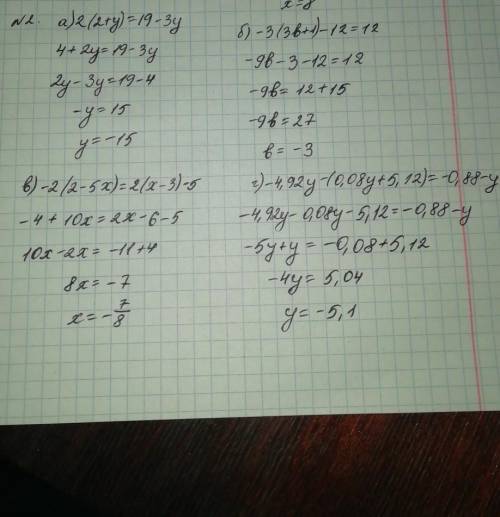 x=8
№2. а) 2(2+y)=19-3y
4+2y=19-3y
2y-3y=19-4
-y=15
y=-15
б) -3(3в+1)-12=12
-9в-3-12=12
-9в=12+15
-9в=27
в=-3
в) -2(2-5x)=2(x-3)-5
-4+10x=2x-6-5
10x-2x=-11+4
8x=-7
x=-7/8
г) -4,92y-(0,08y+5,12)=-0,88-y
-4,92y-0,08y-5,12=-0,88-y
-5y+y=-0,08+5,12
-4y=5,04
y=-5,1